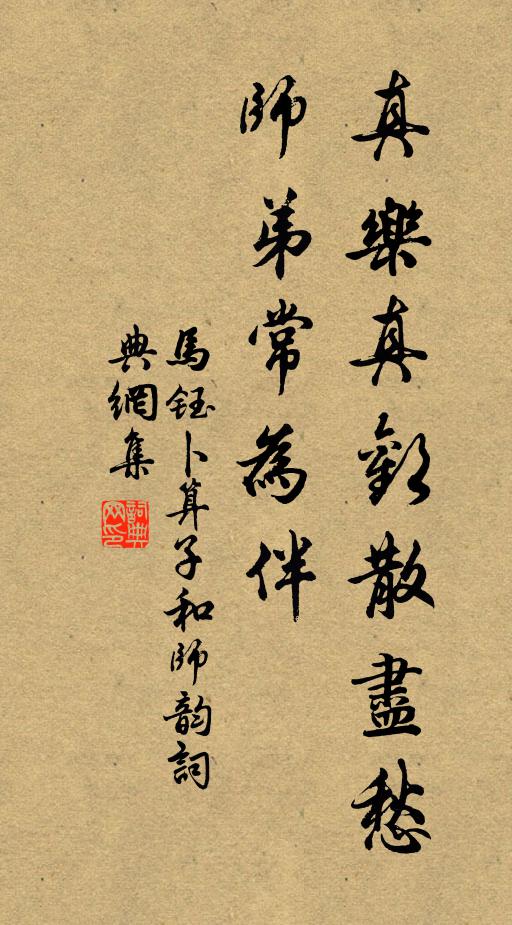 真樂真歡散盡愁
師弟常為伴
馬鈺卜算子和師韵詞
典網集
詞典
網印